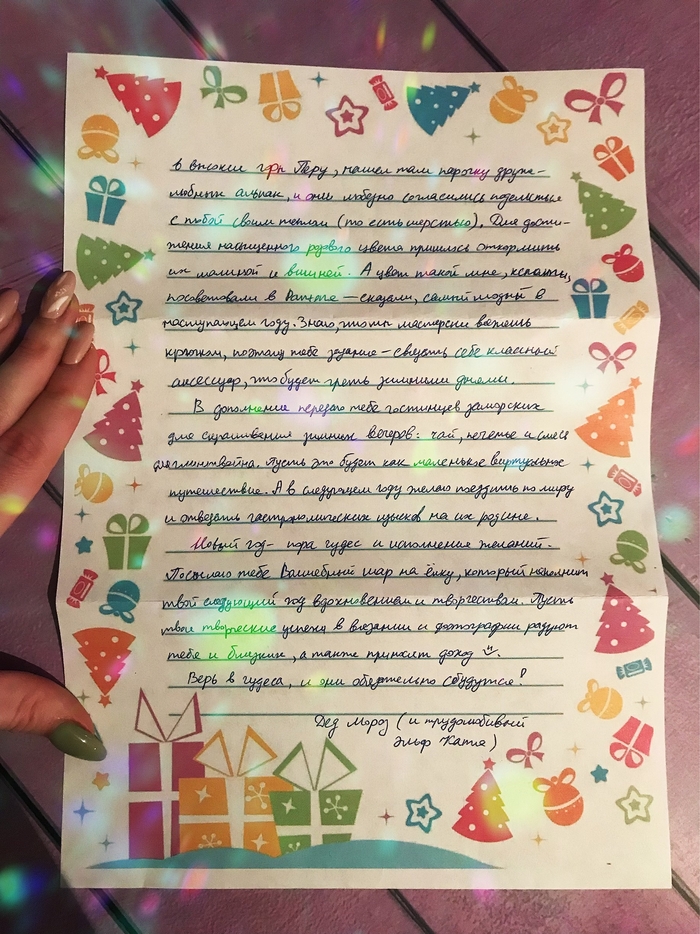 в высокие горы Перу, нашел там парочку друже-
любных альпак, и они любезно согласились поделиться
с тобой своим теплом (то есть шерстью). Для дости-
жения насыщенного розового цвета пришлось откормить
их малиной и вишней. А цвет такой мне, кстати,
посоветовали в Pantone – сказали, самый модный в
наступающем году. Знаю, что ты мастерски вяжешь
крючком, поэтому тебе задание – связать себе классный
аксессуар, что будет греть зимними днями.
В дополнение передаю тебе гостинцев заморских
для скрашивания зимних вечеров: чай, печенье и смеси
для глинтвейна. Пусть это будет как маленькое виртуальное
путешествие. А в следующем году желаю поездить по миру
и отведать гастрономических изысков на их родине.
Новый год – пора чудес и исполнения желаний.
Посылаю тебе Волшебный шар на ёлку, который наполнит
твой следующий год вдохновением и творчеством. Пусть
твои творческие успехи в вязании и фотографии радуют
тебя и близких, а также приносят доход
Верь в чудеса, и они обязательно сбудутся!
Дед Мороз (и трудолюбивый
Эльф Катя)